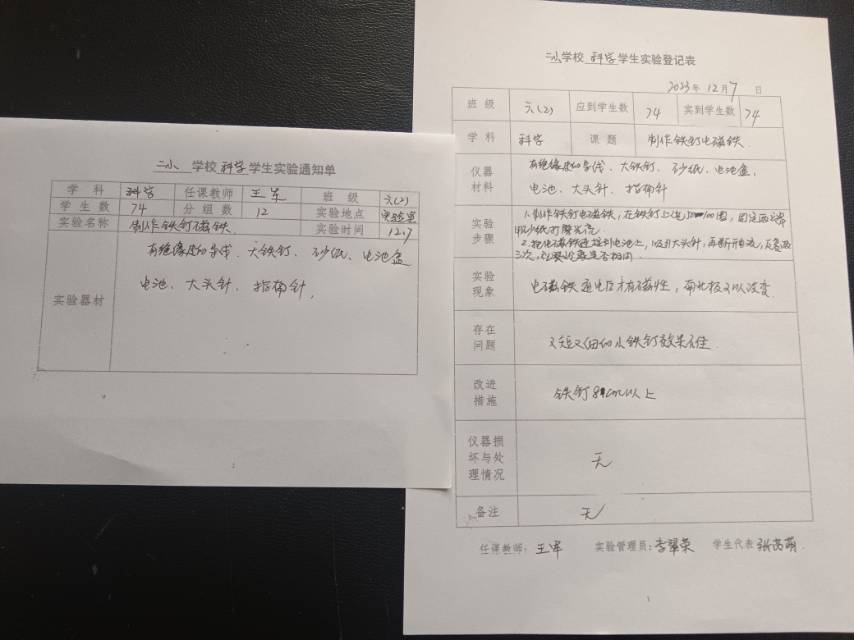 二小 学校 科学 学生实验通知单
学科 科学 任课教师 王军 班级 六(2)
学生数 74 分组数 12 实验地点 实验室
实验名称 制作铁钉磁铁. 实验时间 12.7
实验器材
有绝缘皮的导线、大铁钉、砂纸、电池盒
电池、大头针、指南针,
二小学校 科学 学生实验登记表
2023年 12月 7 日
班级 六(2) 应到学生数 74 实到学生数 74
学科 科学 课题 制作铁钉电磁铁.
仪器材料
有绝缘皮的导线、大铁钉、砂纸、电池盒、
电池、大头针、指南针
实验步骤
1.制作铁钉电磁铁,在铁钉上绕 100圈,固定两端
用砂纸打磨光亮
2.把电磁铁连接到电池上,吸引大头针,再断开电流,反复两
三次,
实验现象
电磁铁通电后才有磁性,南北极可以改变.
存在问题
又短又细的小铁钉效果不佳
改进措施
铁钉8cm以上
仪器损坏与处理情况
无
备注
无
任课教师: 王军 实验管理员: 李翠荣 学生代表 张芮萌